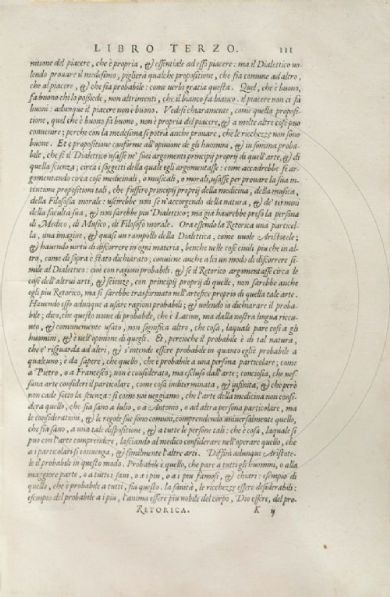 LIBRO TERZO. 111
nitione del piacere, che è propria, & essentiale ad essi piacere: ma il Dialettico vo-
lendo prouare il medesimo, piglierà qualche propositione, che sia comune ad altro,
che al piacere, & che sia probabile: come uerbi gratia questa. Quel, che è buono,
fa buono chi lo possiede, non altrimenti, che il bianco fa bianco. il piacere non ci fa
buoni: adunque il piacere non è buono. Vedesi chiaramente, come quella proposi-
tione, quel che è buono fa buono, non è propria del piacere, & a molte altre cose può
conuenire; perche con la medesima si potrà anche prouare, che le ricchezze non sono
buone. Et è propositione conforme all'opinione de gli huomini, & in somma proba-
bile, che se il Dialettico usasse ne' suoi argomenti principij proprij di quell'arte, & di
quella scienza; circa i soggetti della quale egli argomentasse: come accaderebbe se ar-
gomentando circa cose medicinali, o musicali, o morali, usasse per prouare la sua in-
tentione propositioni tali, che fussero principij proprij della medicina, della musica,
della Filosofia morale: uscirebbe non se n'accorgendo della natura, & de' termini
della facultà sua, & non sarebbe piu Dialettico; ma già haurebbe preso la persona
di Medico, di Musico, di Filosofo morale. Ora essendo la Retorica una particel-
la, una imagine, & quasi un rampollo della Dialettica, come uuole Aristotele;
& hauendo uirtù di discorrere in ogni materia, benche nelle cose ciuili piu che in al-
tro, come di sopra è stato dichiarato; conuiene anche a lei un modo di discorrere si-
mile al Dialettico: cioè con ragioni probabili. & se il Retorico argomentasse circa le
cose dell'altrui arti, & scienze, con principij proprij di quelle, non sarebbe anche
egli piu Retorico, ma si sarebbe trasformato nell'artefice proprio di quella tale arte.
Hauendo esso adunque a usare ragioni probabili; & uolendo io dichiarare il proba-
bile; dico, che questo nome di probabile, che è Latino, ma dalla nostra lingua riceu-
uto, & comunemente usato, non significa altro, che cosa, laquale pare così a gli
huomini, & è nell'opinione di quegli. Et, percioche il probabile è di tal natura,
che e' risguarda ad altri, & s'intende essere probabile in quanto egli è probabile a
qualcuno; è da sapere, che quello, che è probabile a una persona particolare; come
a Pietro, o a Francesco; non è considerato, ma escluso dall'arte; conciosia, che nes-
suna arte consideri il particolare, come cosa indeterminata, & infinita; & che però
non cade sotto la scienza: si come noi ueggiamo, che l'arte della medicina non consi-
dera quello, che sia sano a Iulio, o a Antonio, o ad altra persona particolare, ma
le considerationi, & le regole sue sono comuni, comprendendo uniuersalmente quello,
che sia sano, a una tale dispositione; & a tutte le persone tali: che è cosa, laquale si
può con l'arte comprendere, lasciando al medico considerare nell'operare quello, che
a i particolari si conuenga, & similmente l'altre arti. Definì adunque Aristote-
le il probabile in questo modo. Probabile è quello, che pare a tutti gli huomini, o alla
maggiore parte, o a tutti i saui, o a i piu, o a i piu famosi, & chiari: esempio di
quello, che è probabile a tutti, sia questo: la sanità, le ricchezze essere desiderabili:
esempio del probabile a i piu, l'anima essere piu nobile del corpo, Dio essere, del pro-
RETORICA. K ij